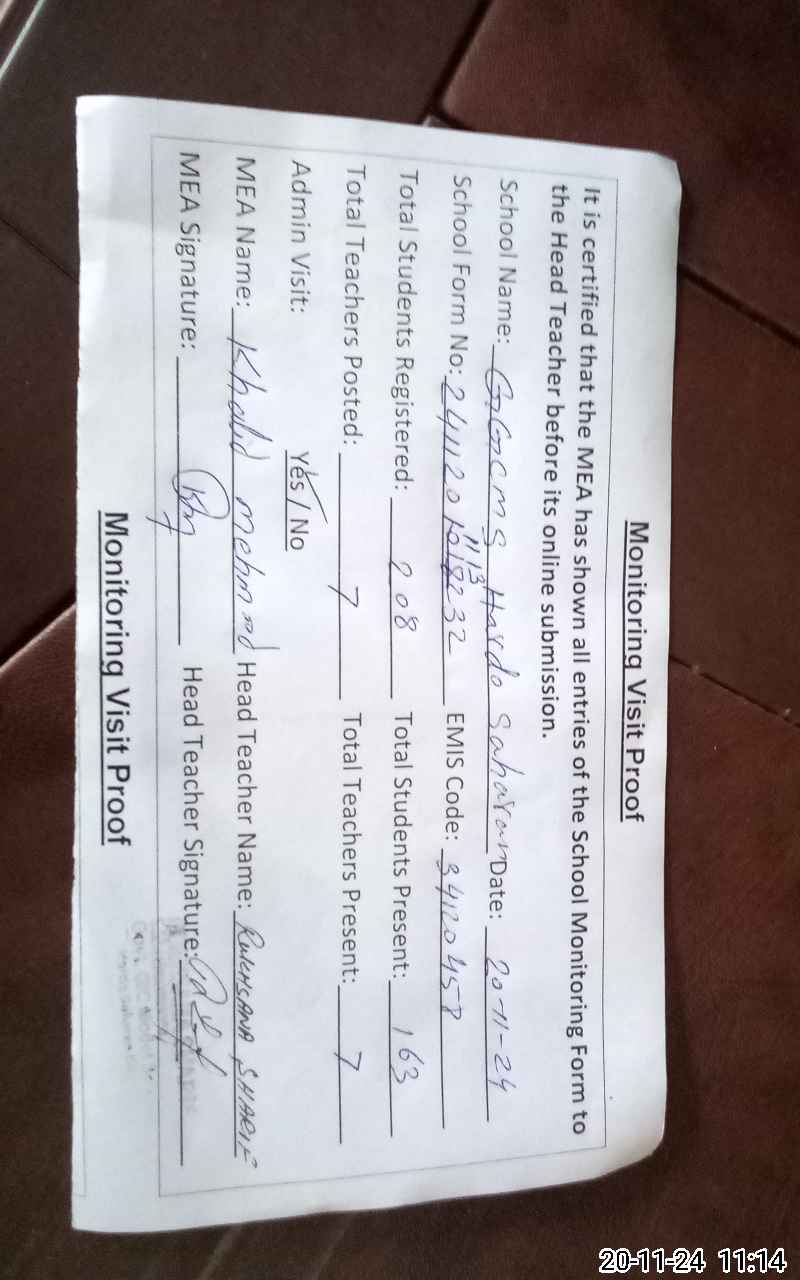 Monitoring Visit Proof
It is certified that the MEA has shown all entries of the School Monitoring Form to
the Head Teacher before its online submission.
School Name: GGCMS Hardo Saharan Date: 20-11-24
School Form No: 241120 1113 232 EMIS Code: 34120458
Total Students Registered: 208 Total Students Present: 163
Total Teachers Posted: 7 Total Teachers Present: 7
Admin Visit: Yes / No
MEA Name: Khalid mehmood Head Teacher Name: RUKHSANA SHARIF
MEA Signature: Head Teacher Signature:
Monitoring Visit Proof
20-11-24 11:14